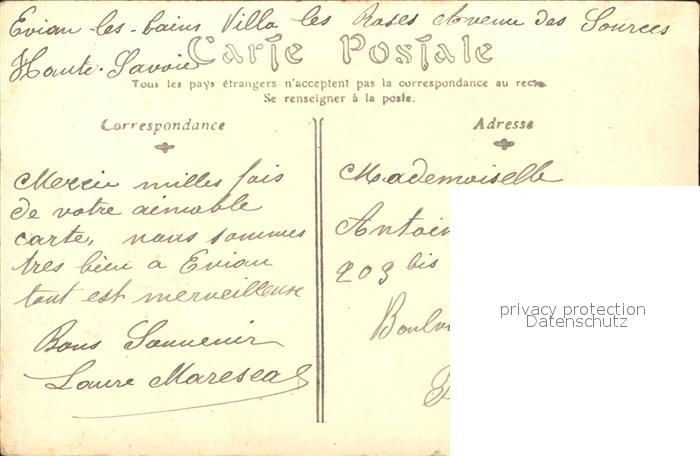 Evian les-bains Villa les Roses Avenue des Sources
Haute-Savoie
Carte Postale
Tous les pays étrangers n'acceptent pas la correspondance au recto
Se renseigner à la poste.
Correspondance
Mercie milles fois
de votre aimable
carte, nous sommes
tres bien a Evian
tout est merveilleuse
Bons Souvenir
Laure
Adresse
Mademoiselle
Antoin
203 bis
privacy protection
Datenschutz